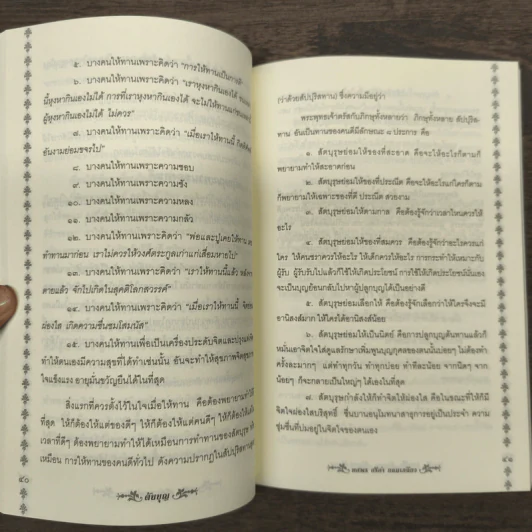 ๕. บางคนให้ทานเพราะคิดว่า "การให้ทานเป็นการดี"
๖. บางคนให้ทานเพราะคิดว่า "เราหุงหากินเองได้
นี้หุงหากินเองไม่ได้ การที่เราหุงหากินเองได้ จะไม่ให้ทานแก่
ผู้หุงหากินเองไม่ได้ ไม่ควร"
๗. บางคนให้ทานเพราะคิดว่า "เมื่อเราให้ทานนี้
อันงามย่อมขจรไป"
๘. บางคนให้ทานเพราะความชอบ
๙. บางคนให้ทานเพราะความชัง
๑๐. บางคนให้ทานเพราะความหลง
๑๑. บางคนให้ทานเพราะความกลัว
๑๒. บางคนให้ทานเพราะคิดว่า "พ่อและปู่เคยให้ทาน
ทำทานมาก่อน เราไม่ควรให้วงศ์ตระกูลเก่าแก่เสื่อมหายไป"
๑๓. บางคนให้ทานเพราะคิดว่า "เราให้ทานนี้แล้ว หลังจาก
ตายแล้ว จักไปเกิดในสุคติโลกสวรรค์"
๑๔. บางคนให้ทานเพราะคิดว่า "เมื่อเราให้ทานนี้ จิต
ผ่องใส เกิดความชื่นชมโสมนัส"
๑๕. บางคนให้ทานเพื่อเป็นเครื่องประดับจิตและปรุงแต่งจิต
ทำให้ตนเองมีความสุขที่ได้ทำเช่นนั้น อันจะทำให้สุขภาพจิต
ใจแข็งแรง อายุมั่นขวัญยืนได้ในที่สุด
สิ่งแรกที่ควรตั้งไว้ในใจเมื่อให้ทาน คือต้องพยายามทำให้ดี
ที่สุด ให้ก็ต้องให้แต่ของดีๆ ให้ก็ต้องให้แต่คนดีๆ ให้ก็ต้องให้
เวลาที่ดีๆ ต้องพยายามทำให้ได้เหมือนการทำทานของสัตบุรุษ
เหมือน การให้ทานของคนดีทั่วไป ดังความปรากฏในสัปปุริสทานสูตร
๔๐
ต้นบุญ
(ว่าด้วยสัปปุริสทาน) ซึ่งความมีอยู่ว่า
พระพุทธเจ้าตรัสกับภิกษุทั้งหลายว่า ภิกษุทั้งหลาย สัปปุริส-
ทาน อันเป็นทานของคนดีมีลักษณะ ๘ ประการ คือ
๑. สัตบุรุษย่อมให้ของที่สะอาด คือจะให้อะไรก็ตามก็
พยายามทำให้สะอาดก่อน
๒. สัตบุรุษย่อมให้ของที่ประณีต คือจะให้อะไรแก่ใครก็ตาม
ก็พยายามให้เฉพาะของที่ดี ประณีต สวยงาม
๓. สัตบุรุษย่อมให้ตามกาล คือต้องรู้จักว่าเวลาไหนควรให้
อะไร
๔. สัตบุรุษย่อมให้ของที่สมควร คือต้องรู้จักว่าอะไรควรแก่
ใคร ให้คนชราควรให้อะไร ให้เด็กควรให้อะไร การกระทำให้เหมาะกับ
ผู้รับ ผู้รับรับไปแล้วก็ใช้ให้เกิดประโยชน์ การใช้ให้เกิดประโยชน์นั่นเอง
จะเป็นบุญย้อนกลับไปหาผู้ปลูกบุญได้เป็นอย่างดี
๕. สัตบุรุษย่อมเลือกให้ คือต้องรู้จักเลือกว่าให้ใครจึงจะมี
อานิสงส์มาก ให้ใครได้อานิสงส์น้อย
๖. สัตบุรุษย่อมให้เป็นนิตย์ คือการปลูกบุญต้นทานแล้วก็
หมั่นเอาใจใส่ดูแลรักษาเพิ่มพูนบุญกุศลของตนนั้นบ่อยๆ ไม่ต้องทำ
ครั้งละมากๆ แต่ทำทุกวัน ทำทุกบ่อย ทำทีละน้อย จากนิดๆ จาก
น้อยๆ ก็จะกลายเป็นใหญ่ๆ ได้เองในที่สุด
๗. สัตบุรุษกำลังให้ก็ทำจิตให้ผ่องใส คือในขณะที่ให้ก็มี
จิตใจผ่องใสบริสุทธิ์ ชื่นบานอนุโมทนาสาธุการอยู่เป็นประจำ ความ
ชุ่มชื่นที่บ่มอยู่ในจิตใจของตนเอง